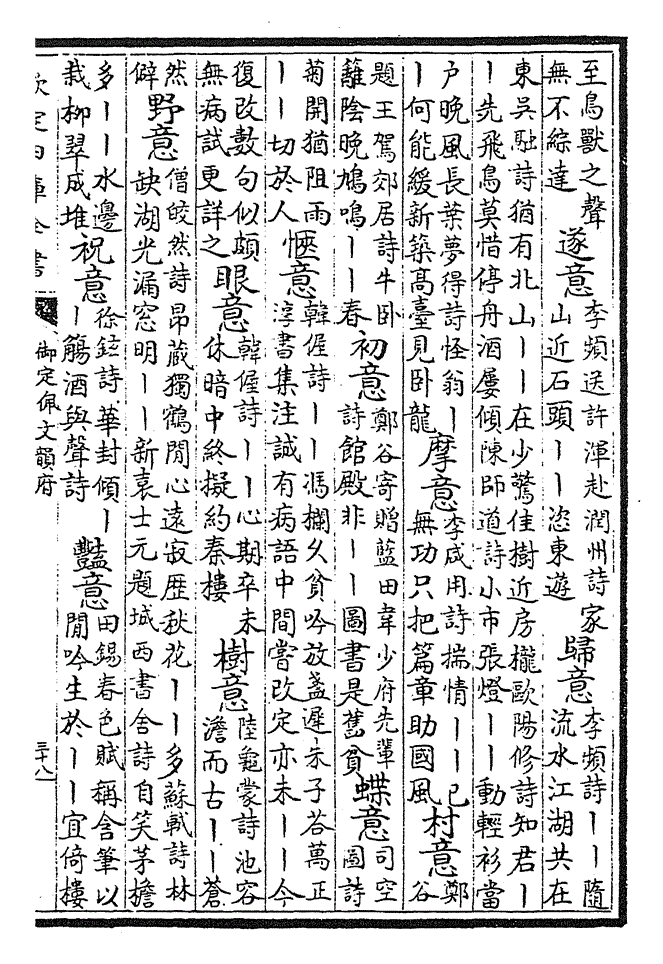 至鳥獸之聲
無不綜達
遂意
李頻送許渾赴潤州詩家
山近石頭丨丨恣東遊
歸意
李頻詩丨丨隨
流水江湖共在
東吳駐詩猶有北山丨丨在少驚佳樹近房櫳歐陽修詩知君丨
丨先飛鳥莫惜停舟酒屢傾陳師道詩小市張燈丨丨動輕衫當
戶晚風長葉夢得詩怪翁丨
丨何能緩新築高臺見卧龍
摩意
李咸用詩揣情丨丨已
無功只把篇章助國風
村意
鄭
谷
題王駕郊居詩牛卧
籬陰晚鳩鳴丨丨春
初意
鄭谷寄贈藍田韋少府先輩
詩館殿非丨丨圖書是舊貧
蝶意
司空
圖詩
菊開猶阻雨
丨丨切於人
愜意
韓偓詩丨丨馮欄久貧吟放盞遲朱子答萬正
淳書集注誠有病語中間嘗改定亦未丨丨今
復改數句似頗
無病試更詳之
眼意
韓偓詩丨丨心期卒未
休暗中終擬約秦樓
樹意
陸龜蒙詩池容
澹而古丨丨蒼
然
僻
野意
僧皎然詩昂藏獨鶴閒心遠寂歴秋花丨丨多蘇軾詩林
缺湖光漏窓明丨丨新袁士元題城西書舍詩自笑茅檐
多丨丨水邊
栽柳翠成堆
祝意
徐鉉詩華封傾丨
丨觴酒與聲詩
豔意
田錫春色賦稱含筆以
閒吟生於丨丨宜倚樓
欽定四庫全書
御定佩文韻府
三十八